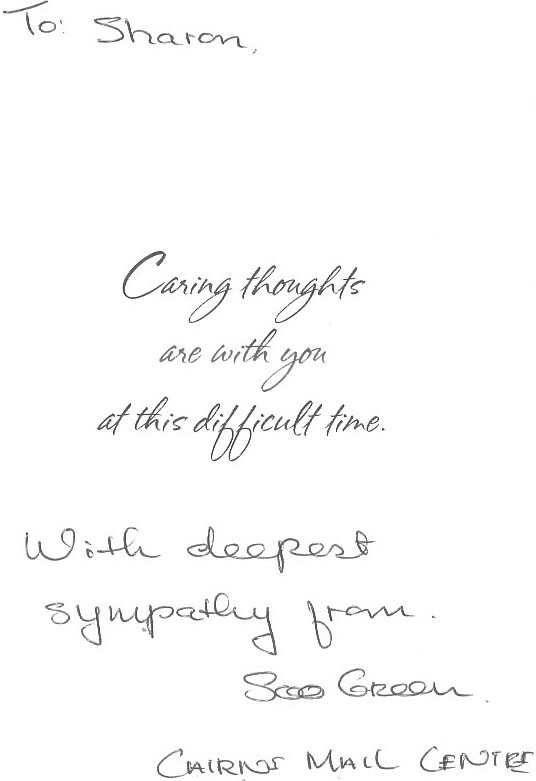 To: Sharon,
Caring thoughts
are with you
at this difficult time.
With deepest
sympathy from.
Green.
CAIRNS MAIL CENTRE